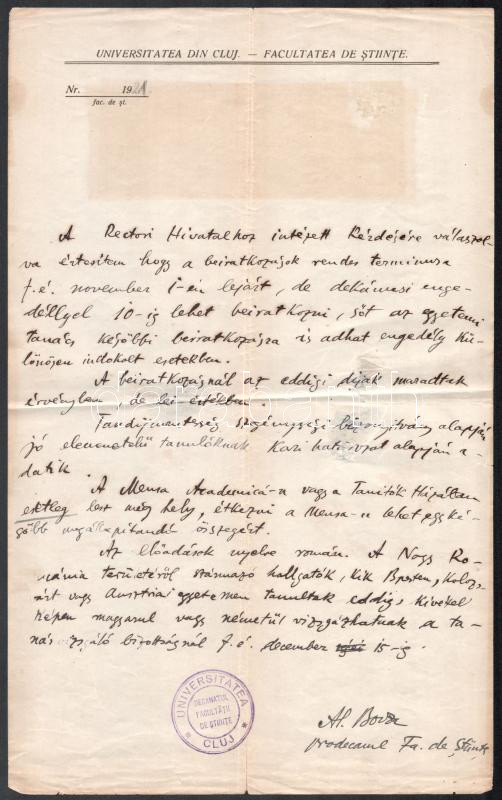 UNIVERSITATEA DIN CLUJ. — FACULTATEA DE ȘTIINȚE.
Nr. 1921.
fac. de şt.
A Rectori Hivatalhoz intézett kérdésére válaszol-
va értesítem hogy a beiratkozások rendes terminusa
f. é. november 1-én lejárt, de dékánusi enge-
déllyel 10-ig lehet beiratkozni, sőt az egyetemi
tanács későbbi beiratkozásra is adhat engedély kü-
lönösen indokolt esetekben.
A beiratkozásnál az eddigi díjak maradtak
érvényben de lei értékben.
Tandíjmentesség szegénységi bizonyítvány alapján
jó elemenetelű tanulóknak kari határozat alapján a-
datik.
A Mensa Academică-n vagy a Tanítók Házában
esetleg lesz még hely, étkezni a Mensa-n lehet egy ké-
sőbb megállapítandó összegért.
Az előadások nyelve román. A Nagy Ro-
mánia területéről származó hallgatók, kik Bpesten, Kolozs-
várt vagy Ausztriai egyetemen tanultak eddig, kivétel
képen magyarul vagy németül vizsgázhatnak a ta-
nárvizsgáló bizottságnál f. é. december 15-ig.
UNIVERSITATEA
DECANATUL
FACULTĂȚII
DE ȘTIINȚE
* CLUJ *
Al. Borza
prodecanul Fa. de Științe